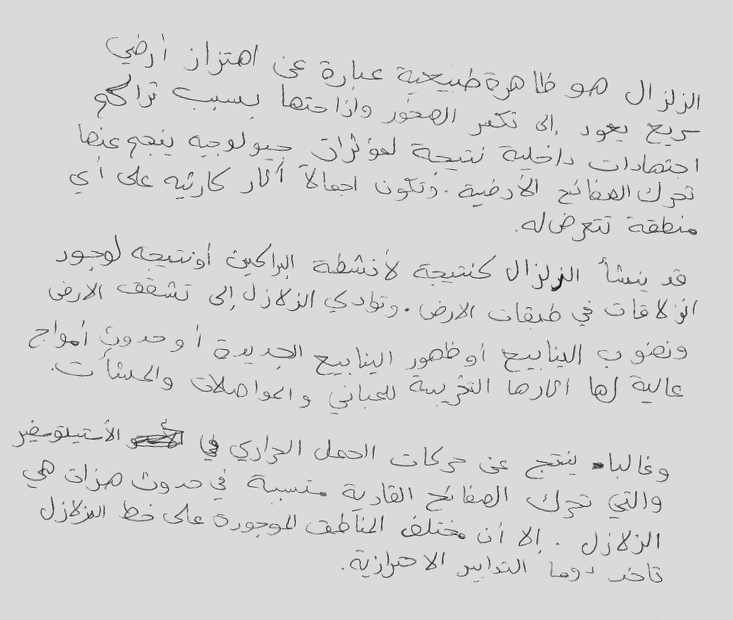 الزلزال هو ظاهرة طبيعية عبارة عن اهتزاز أرضي
سريع يعود إلى تكسر الصخور وإزاحتها بسبب تراكم
اجتهادات داخلية نتيجة لمؤثرات جيولوجيه ينجم عنها
تحرك الصفائح الأرضية . وتكون اجمالاً آثار كارثيه على أي
منطقة تتعرض له.
قد ينشأ الزلزال كنتيجة لأنشطة البراكين أو نتيجه لوجود
انزلاقات في طبقات الارض . وتؤدي الزلازل إلى تشقق الارض
ونضوب الينابيع أو ظهور الينابيع الجديدة أو حدوث أمواج
عالية لها اثارها التخريبية للمباني والمواصلات والمنشأت.
وغالبا ينتج عن حركات الحمل الحراري في الأستيلوسفير
والتي تحرك الصفائح القارية متسببة في حدوث هزات هي
الزلازل . إلا أن مختلف المناطق الموجودة على خط الزلازل
تاخذ دوما التدابير الاحترازية.